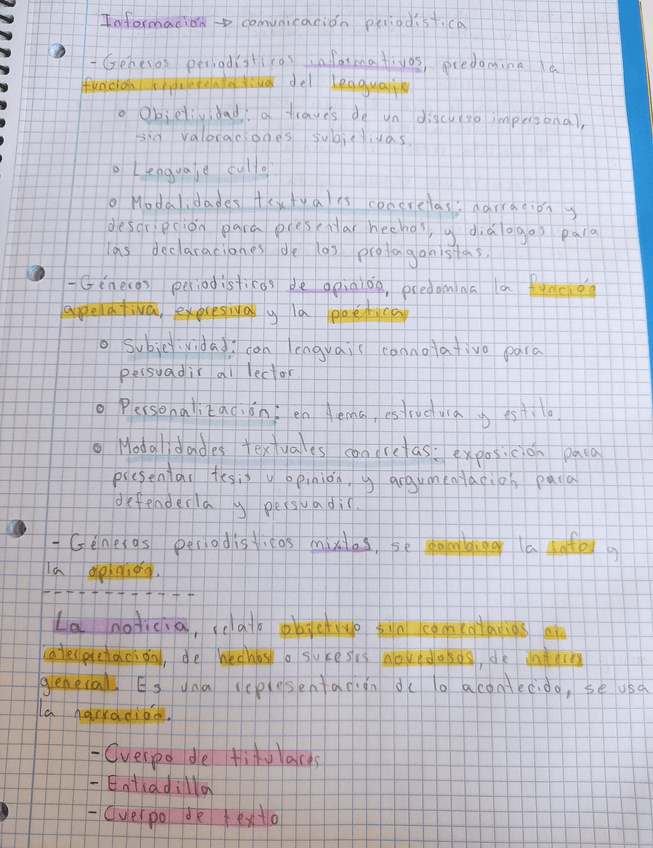 Información → comunicación periodística
- Géneros periodísticos informativos, predomina la
función representativa del lenguaje
o Objetividad: a través de un discurso impersonal,
sin valoraciones subjetivas
o Lenguaje culto
o Modalidades textuales concretas: narración y
descripción para presentar hechos, y diálogos para
las declaraciones de los protagonistas.
- Géneros periodísticos de opinión, predomina la función
apelativa, expresiva y la poética
o Subjetividad: con lenguaje connotativo para
persuadir al lector
o Personalización: en tema, estructura y estilo.
o Modalidades textuales concretas: exposición para
presentar tesis u opinión, y argumentación para
defenderla y persuadir.
- Géneros periodísticos mixtos, se combina la info y
la opinión.
-----------
La noticia, relato objetivo sin comentarios ni
interpretación, de hechos o sucesos novedosos, de interés
general. Es una representación de lo acontecido, se usa
la narración.
- Cuerpo de titulares
- Entradilla
- Cuerpo de texto